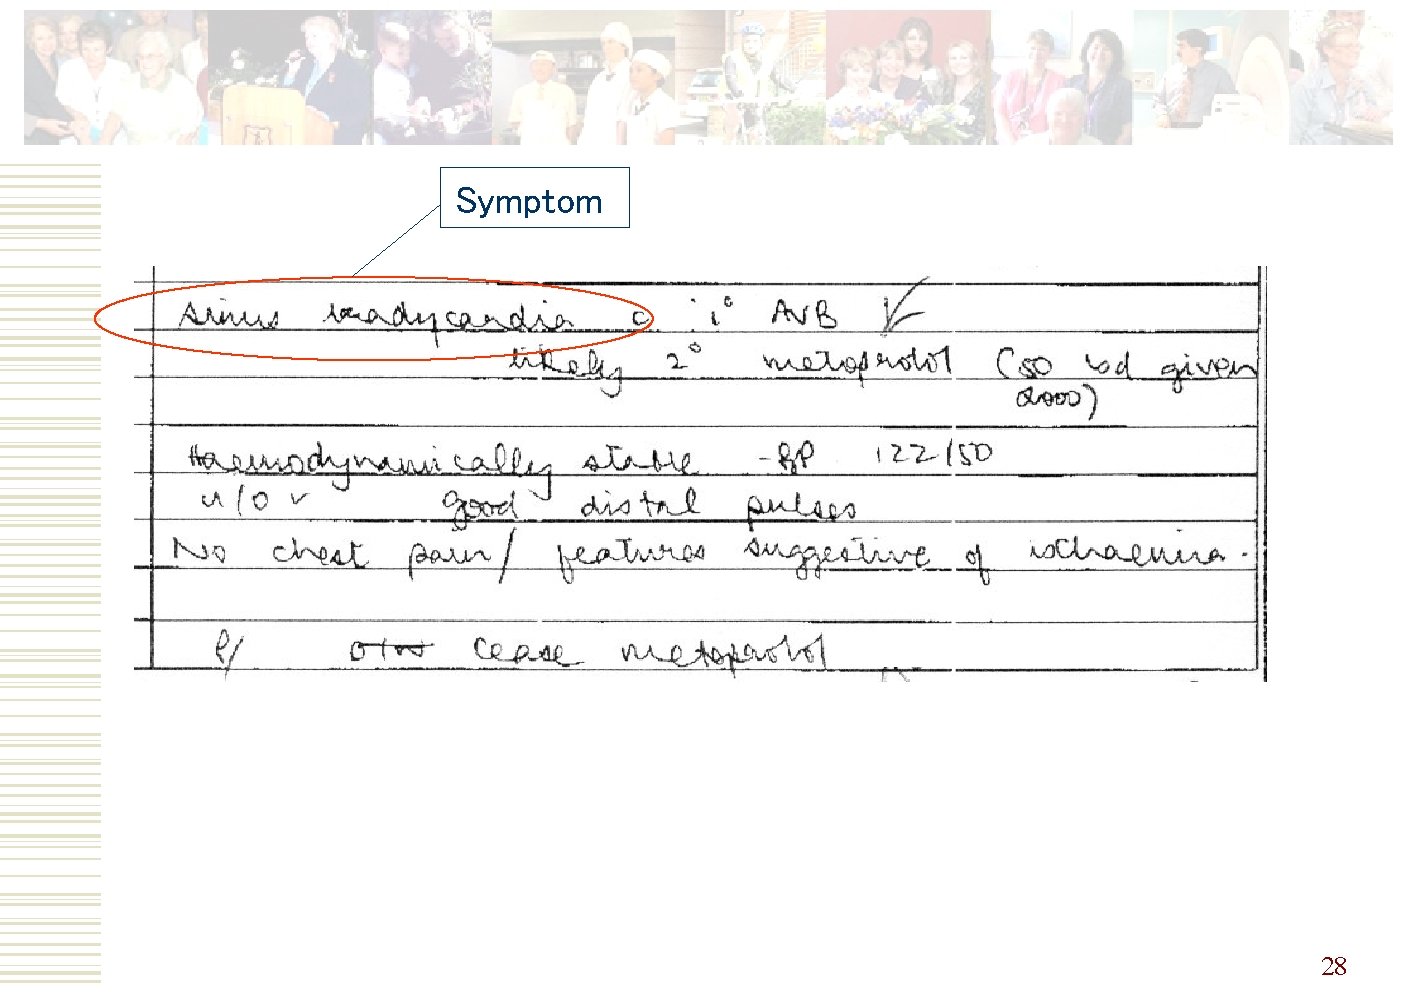 Symptom
sinus bradycardia c i° AVB
likely 2° metoprolol (50 bd given
2000)
Haemodynamically stable - BP 122/50
u/o good distal pulses
No chest pain / features suggestive of ischaemia.
cease metoprolol
28